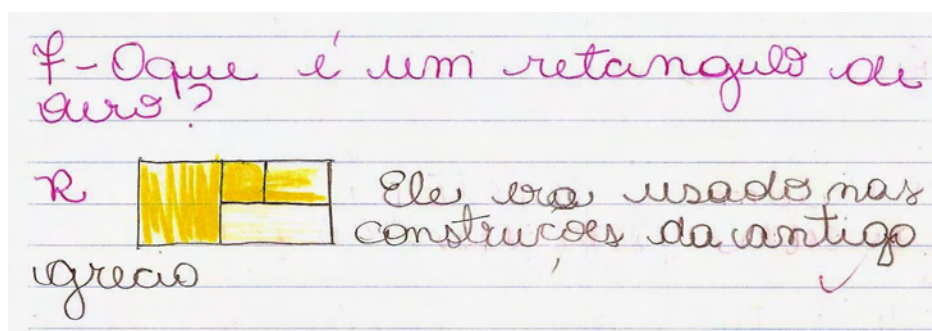 7-Oque é um retangulo de
ouro?
R Ele era usado nas
construções da antiga
grecia